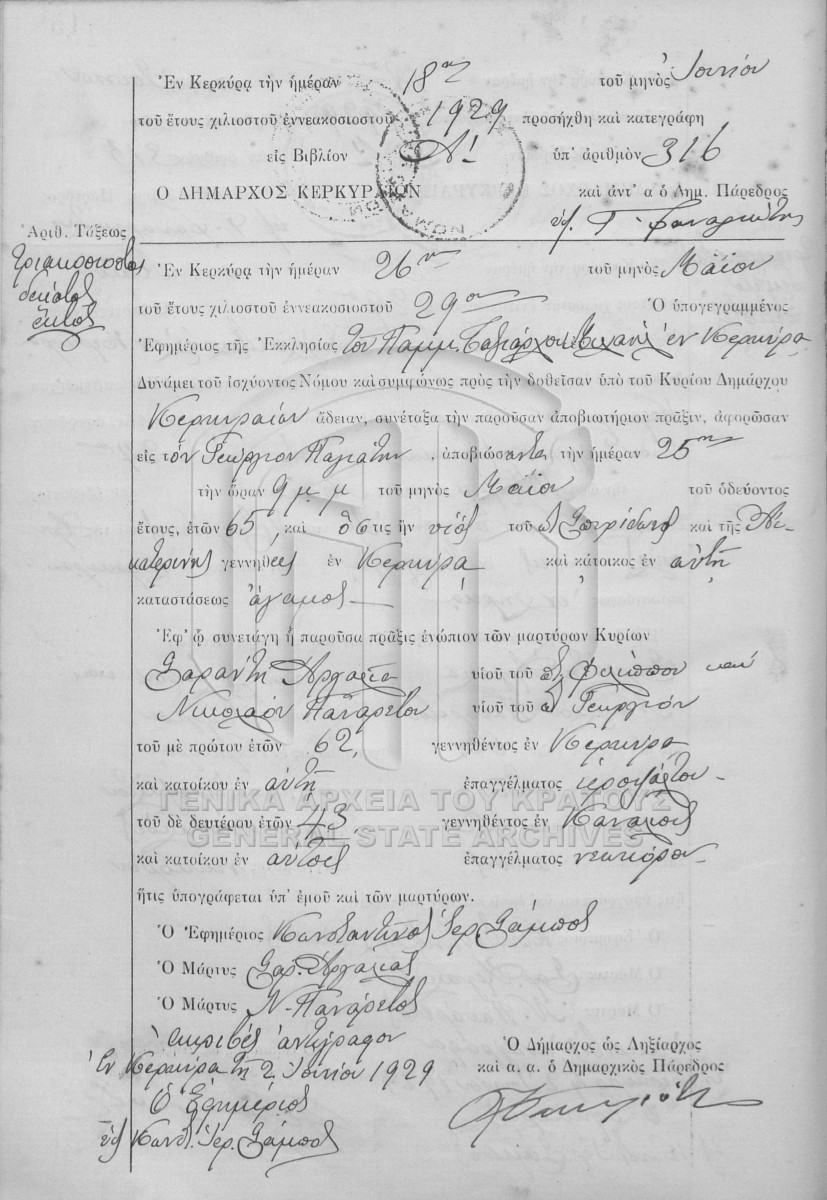 Ἐν Κερκύρᾳ τὴν ἡμέραν 18ην τοῦ μηνὸς Ἰουνίου
τοῦ ἔτους χιλιοστοῦ ἐννεακοσιοστοῦ 1929 προσήχθη καὶ κατεγράφη
εἰς Βιβλίον Α' ὑπ' ἀριθμὸν 316
Ο ΔΗΜΑΡΧΟΣ ΚΕΡΚΥΡΑΙΩΝ καὶ ἀντ' α ὁ Δημ. Πάρεδρος
Ἀριθ. Τάξεως
τριακοσιοστὸς
δέκατος
ἕκτος
Ἐν Κερκύρᾳ τὴν ἡμέραν 26ην τοῦ μηνὸς Μαΐου
τοῦ ἔτους χιλιοστοῦ ἐννεακοσιοστοῦ 29ου Ὁ ὑπογεγραμμένος
Ἐφημέριος τῆς Ἐκκλησίας τῶν Παμμ. Ταξιαρχῶν ἐν Κερκύρᾳ
Δυνάμει τοῦ ἰσχύοντος Νόμου καὶ συμφώνως πρὸς τὴν δοθεῖσαν ὑπὸ τοῦ Κυρίου Δημάρχου
Κερκυραίων ἄδειαν, συνέταξα τὴν παροῦσαν ἀποβιωτήριον πρᾶξιν, ἀφορῶσαν
εἰς τὸν Γεώργιον Παγιάτην, ἀποβιώσαντα τὴν ἡμέραν 25ην
τὴν ὥραν 9 μ μ τοῦ μηνὸς Μαΐου τοῦ ὁδεύοντος
ἔτους, ἐτῶν 65, καὶ ὅστις ἦν υἱὸς τοῦ Σπυρίδωνος καὶ τῆς Αἰ-
κατερίνης γεννηθεὶς ἐν Κερκύρᾳ καὶ κάτοικος ἐν αὐτῇ
καταστάσεως ἄγαμος
Ἐφ' ᾧ συνετάγη ἡ παροῦσα πρᾶξις ἐνώπιον τῶν μαρτύρων Κυρίων
Σαράντη υἱοῦ τοῦ Φιλίππου καὶ
Νικολάου Παναρέτου υἱοῦ τοῦ Γεωργίου
τοῦ μὲ πρώτου ἐτῶν 62, γεννηθέντος ἐν Κερκύρᾳ
καὶ κατοίκου ἐν αὐτῇ ἐπαγγέλματος ἱεροψάλτου
τοῦ δὲ δευτέρου ἐτῶν 43, γεννηθέντος ἐν
καὶ κατοίκου ἐν ἐπαγγέλματος νεωκόρου
ἥτις ὑπογράφεται ὑπ' ἐμοῦ καὶ τῶν μαρτύρων.
Ὁ Ἐφημέριος Κωνσταντῖνος Ἱερ. Σάμπος
Ὁ Μάρτυς Σαρ.
Ὁ Μάρτυς Ν. Πανάρετος
Ἀκριβὲς ἀντίγραφον
Ἐν Κερκύρᾳ τῇ 2 Ἰουνίου 1929
Ὁ Ἐφημέριος
Κωνστ. Ἱερ. Σάμπος
Ὁ Δήμαρχος ὡς Ληξίαρχος
καὶ α. α. ὁ Δημαρχικὸς Πάρεδρος
ΓΕΝΙΚΑ ΑΡΧΕΙΑ ΤΟΥ ΚΡΑΤΟΥΣ
GENERAL STATE ARCHIVES